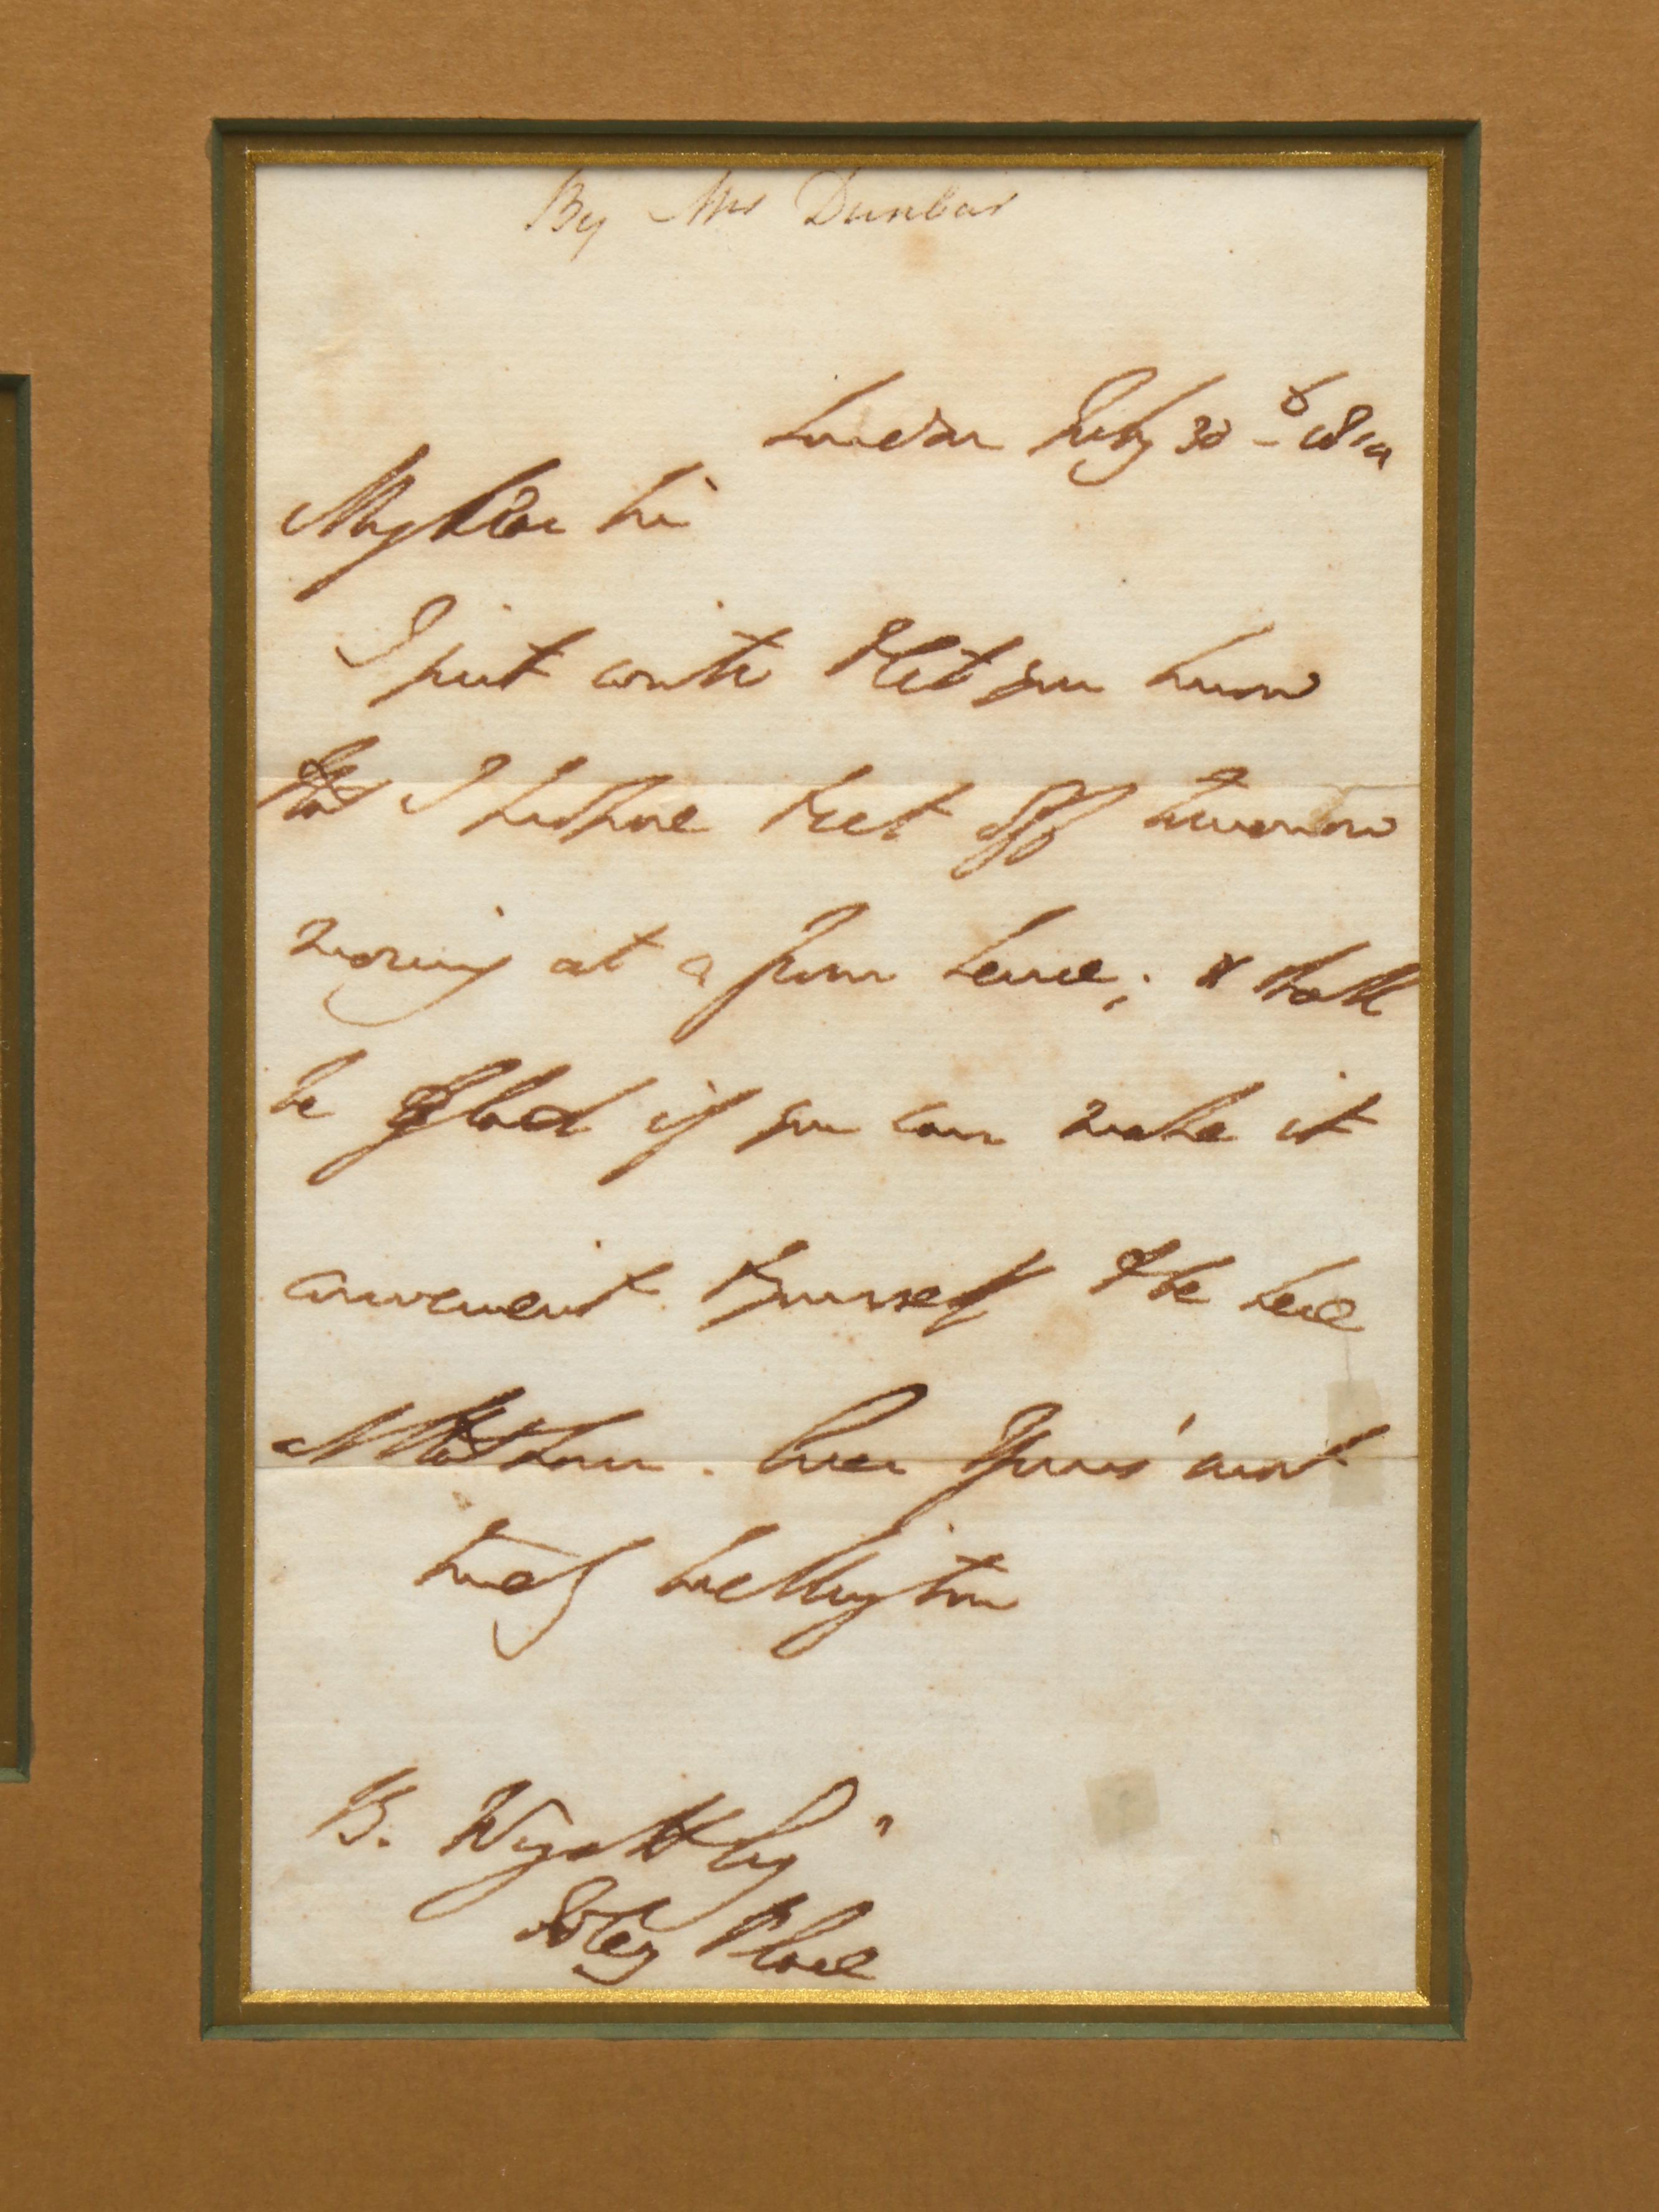 By Mr Dunbar
London July 30th 1814
My dear Sir
I just write to let you know
that I propose to set off tomorrow
morning at a four hence; & shall
be glad if you can make it
convenient to yourself to be here
at that hour. Ever Yours most
truly Wellington
B. Wyatt Esq
Foley Place